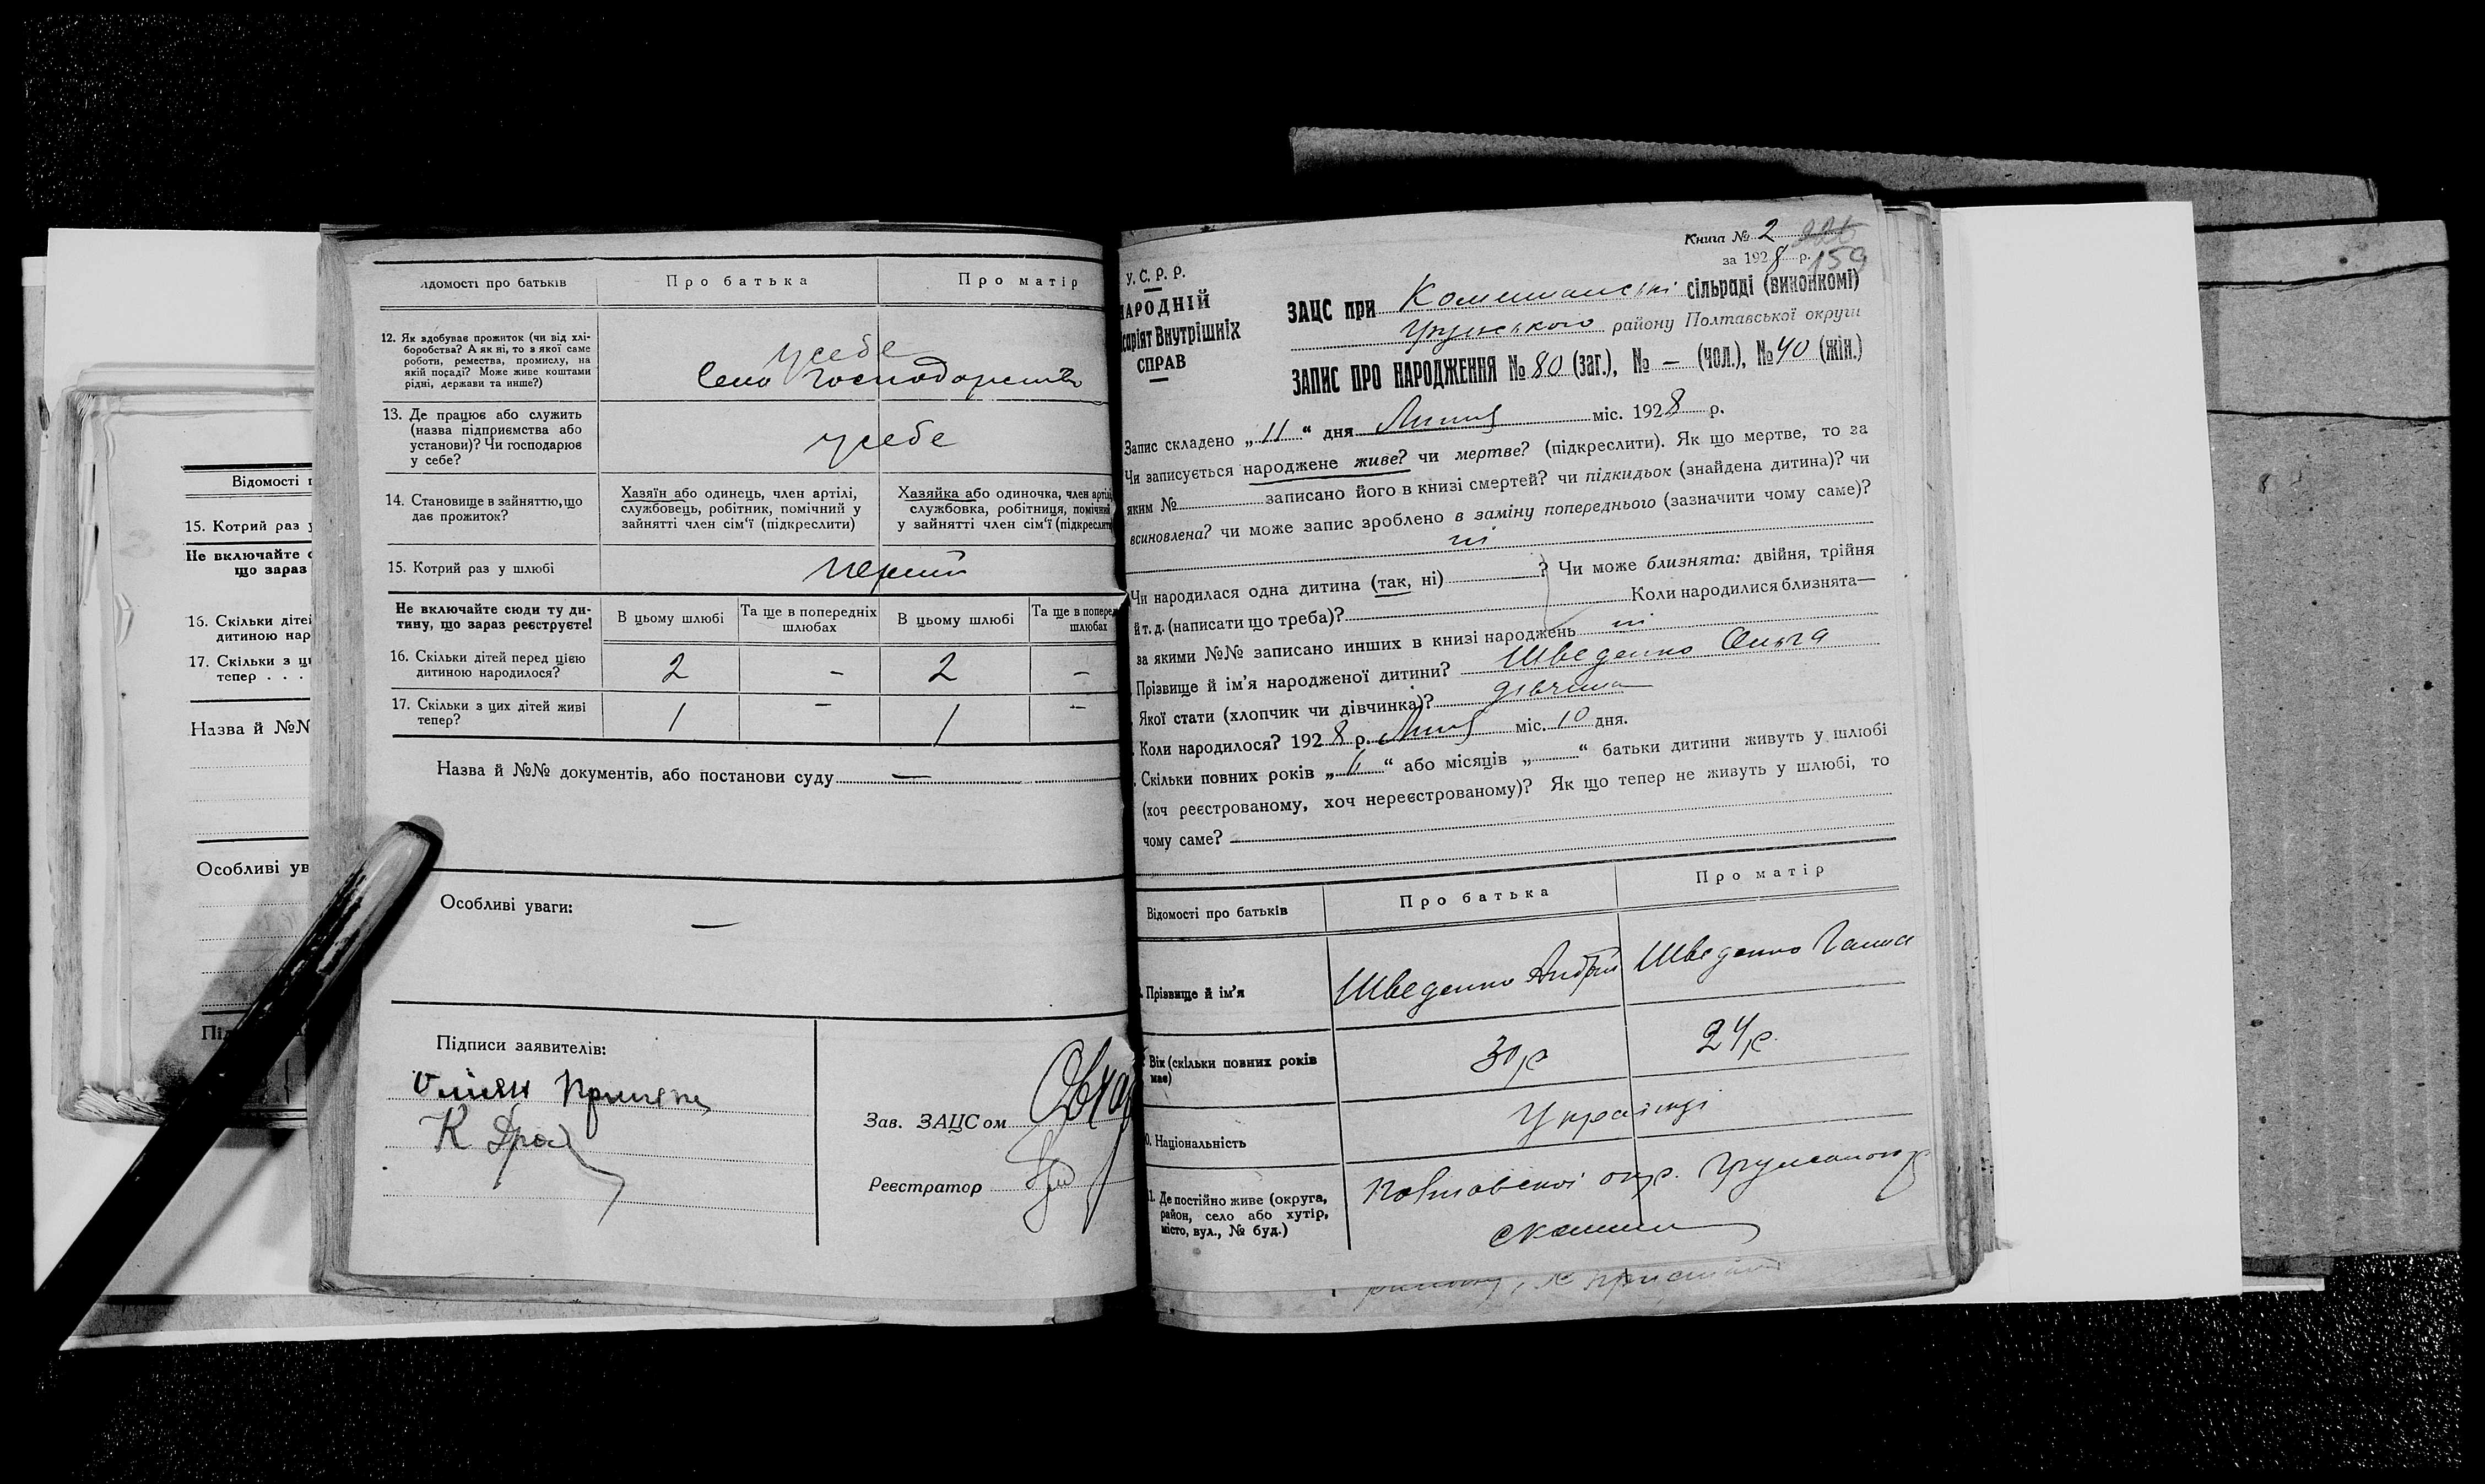 Відомості п
15. Котрий раз у
Не включайте с
що зараз
16. Скільки дітей
дитиною нар
17. Скільки з ци
тепер . . .
Назва й №№
Особливі ув
Під
ідомості про батьків
Про батька
Про матір
12. Як здобуває прожиток (чи від хлі-
боробства? А як ні, то з якої саме
роботи, ремества, промислу, на
якій посаді? Може живе коштами
рідні, держави та инше?)
усебе
Село господарство
13. Де працює або служить
(назва підприємства або
установи)? Чи господарює
у себе?
усебе
14. Становище в зайняттю, що
дає прожиток?
Хазяїн або одинець, член артілі,
службовець, робітник, помічний у
зайнятті член сім'ї (підкреслити)
Хазяйка або одиночка, член артілі,
службовка, робітниця, помічний
у зайнятті член сім'ї (підкреслити
15. Котрий раз у шлюбі
перший
Не включайте сюди ту ди-
тину, що зараз реєструєте!
В цьому шлюбі
Та ще в попередніх
шлюбах
В цьому шлюбі
Та ще в поперед
шлюбах
16. Скільки дітей перед цією
дитиною народилося?
2 – 2 –
17. Скільки з цих дітей живі
тепер?
1 – 1 –
Назва й №№ документів, або постанови суду —
Особливі уваги:
—
Підписи заявителів:
К Дра
Зав. ЗАЦСом Овча
Реєстратор
Книга № 2
за 1928 р. 159
У.С.Р.Р.
НАРОДНІЙ
саріят Внутрішніх
СПРАВ
ЗАЦС при Комишанські сільраді (виконкомі)
Грунського району Полтавської округи
ЗАПИС ПРО НАРОДЖЕННЯ № 80 (заг.), № — (чол.), № 40 (жін.)
Запис складено „11“ дня Липця міс. 1928 р.
Чи записується народжене живе? чи мертве? (підкреслити). Як що мертве, то за
яким № записано його в книзі смертей? чи підкидьок (знайдена дитина)? чи
всиновлена? чи може запис зроблено в заміну попереднього (зазначити чому саме)?
ні
Чи народилася одна дитина (так, ні) ? Чи може близнята: двійня, трійня
й т. д. (написати що треба)? Коли народилися близнята—
за якими №№ записано инших в книзі народжень ні
Прізвище й ім'я народженої дитини? Шведенко Ольга
Якої стати (хлопчик чи дівчинка)? дівчина
Коли народилося? 1928 р. Липця міс. 10 дня.
Скільки повних років „6“ або місяців „ “ батьки дитини живуть у шлюбі
(хоч реєстрованому, хоч нереєстрованому)? Як що тепер не живуть у шлюбі, то
чому саме?
Відомості про батьків
Про батька
Про матір
Прізвище й ім'я
Шведенко Андрій
Шведенко Ганна
Вік (скільки повних років
має)
30 р
24 р.
0. Національність
Українці
1. Де постійно живе (округа,
район, село або хутір,
місто, вул., № буд.)
Полтавської окр. Грунського р